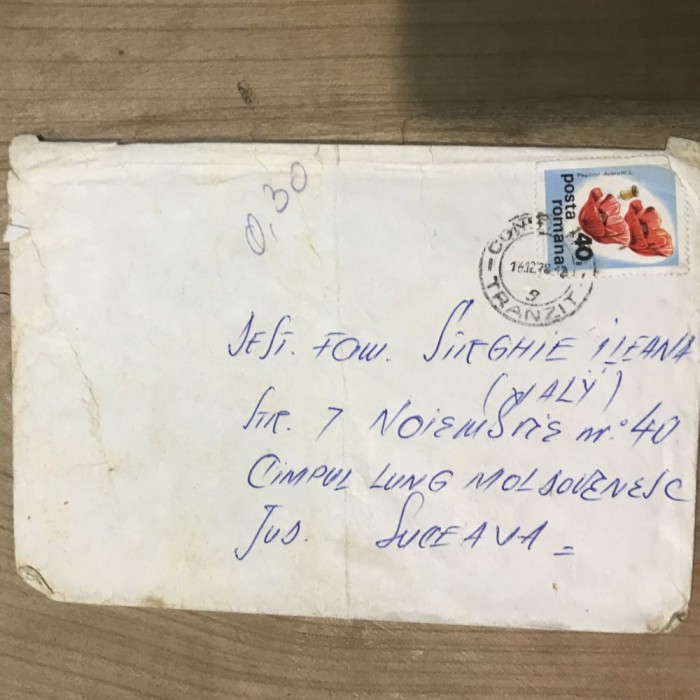 0,30
Papaver dubium L.
posta romana
40
TRANZIT
16.12.78
9
DEST. FAM. SÎRGHIE ILEANA
(VALY)
STR. 7 NOIEMBRIE nr. 40
CÎMPUL LUNG MOLDOVENESC
JUD. SUCEAVA =